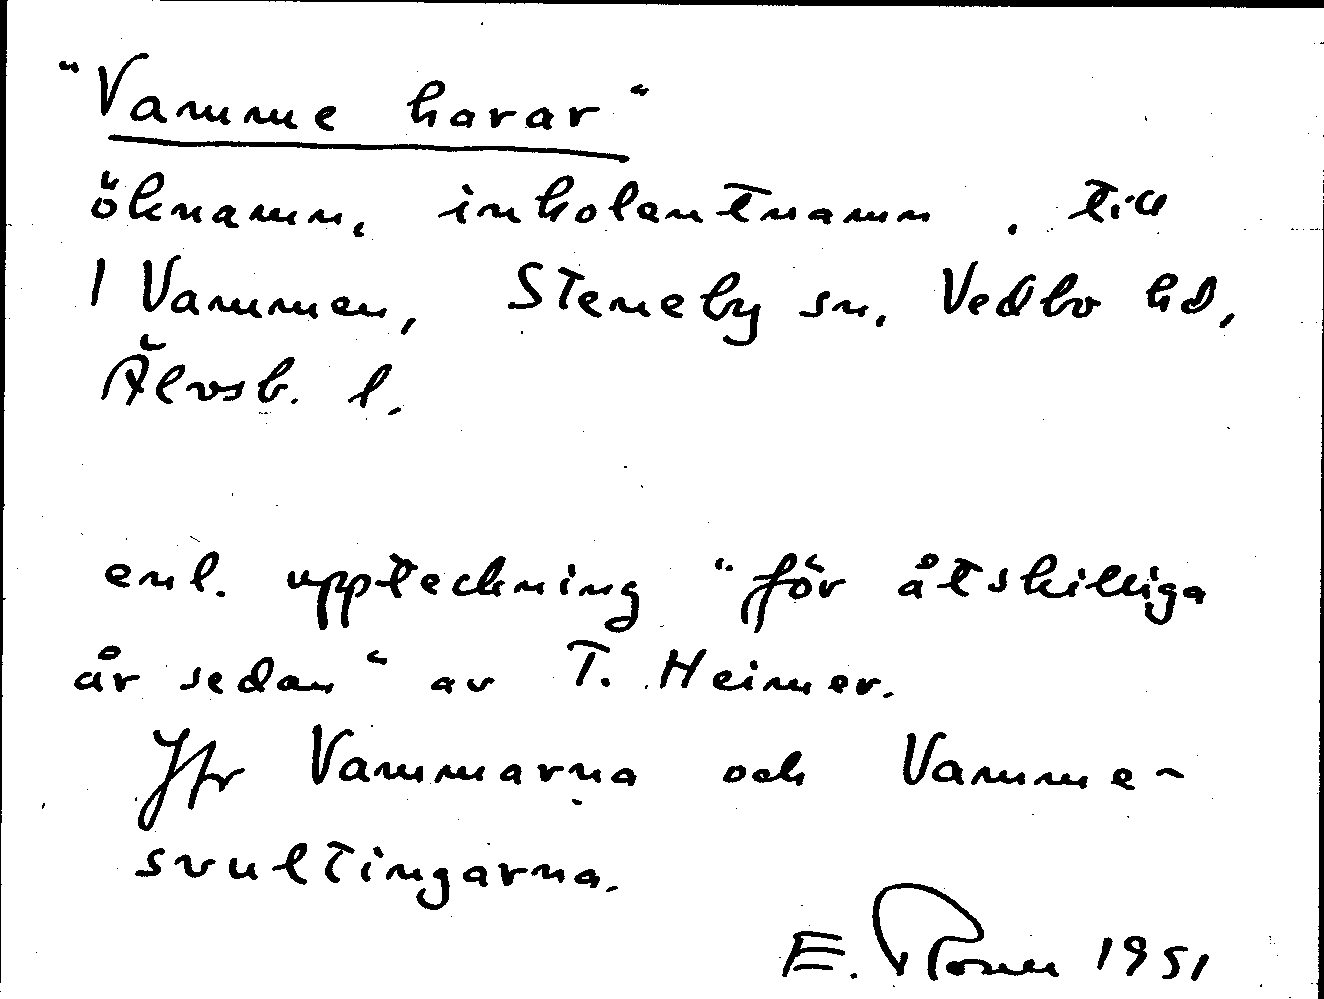 "Vamme harar"
öknamn, inkolentnamn, till
1 Vammen, Steneby sn, Vedbo hd,
Älvsb. l.
enl. uppteckning "för åtskilliga
år sedan" av T. Heimer.
Jfr Vammarna och Vamme-
svultingarna.
E. 1951